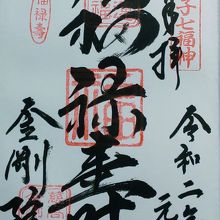 子七福神
奉拝
令和二年
元
福禄寿
福禄寿
金剛